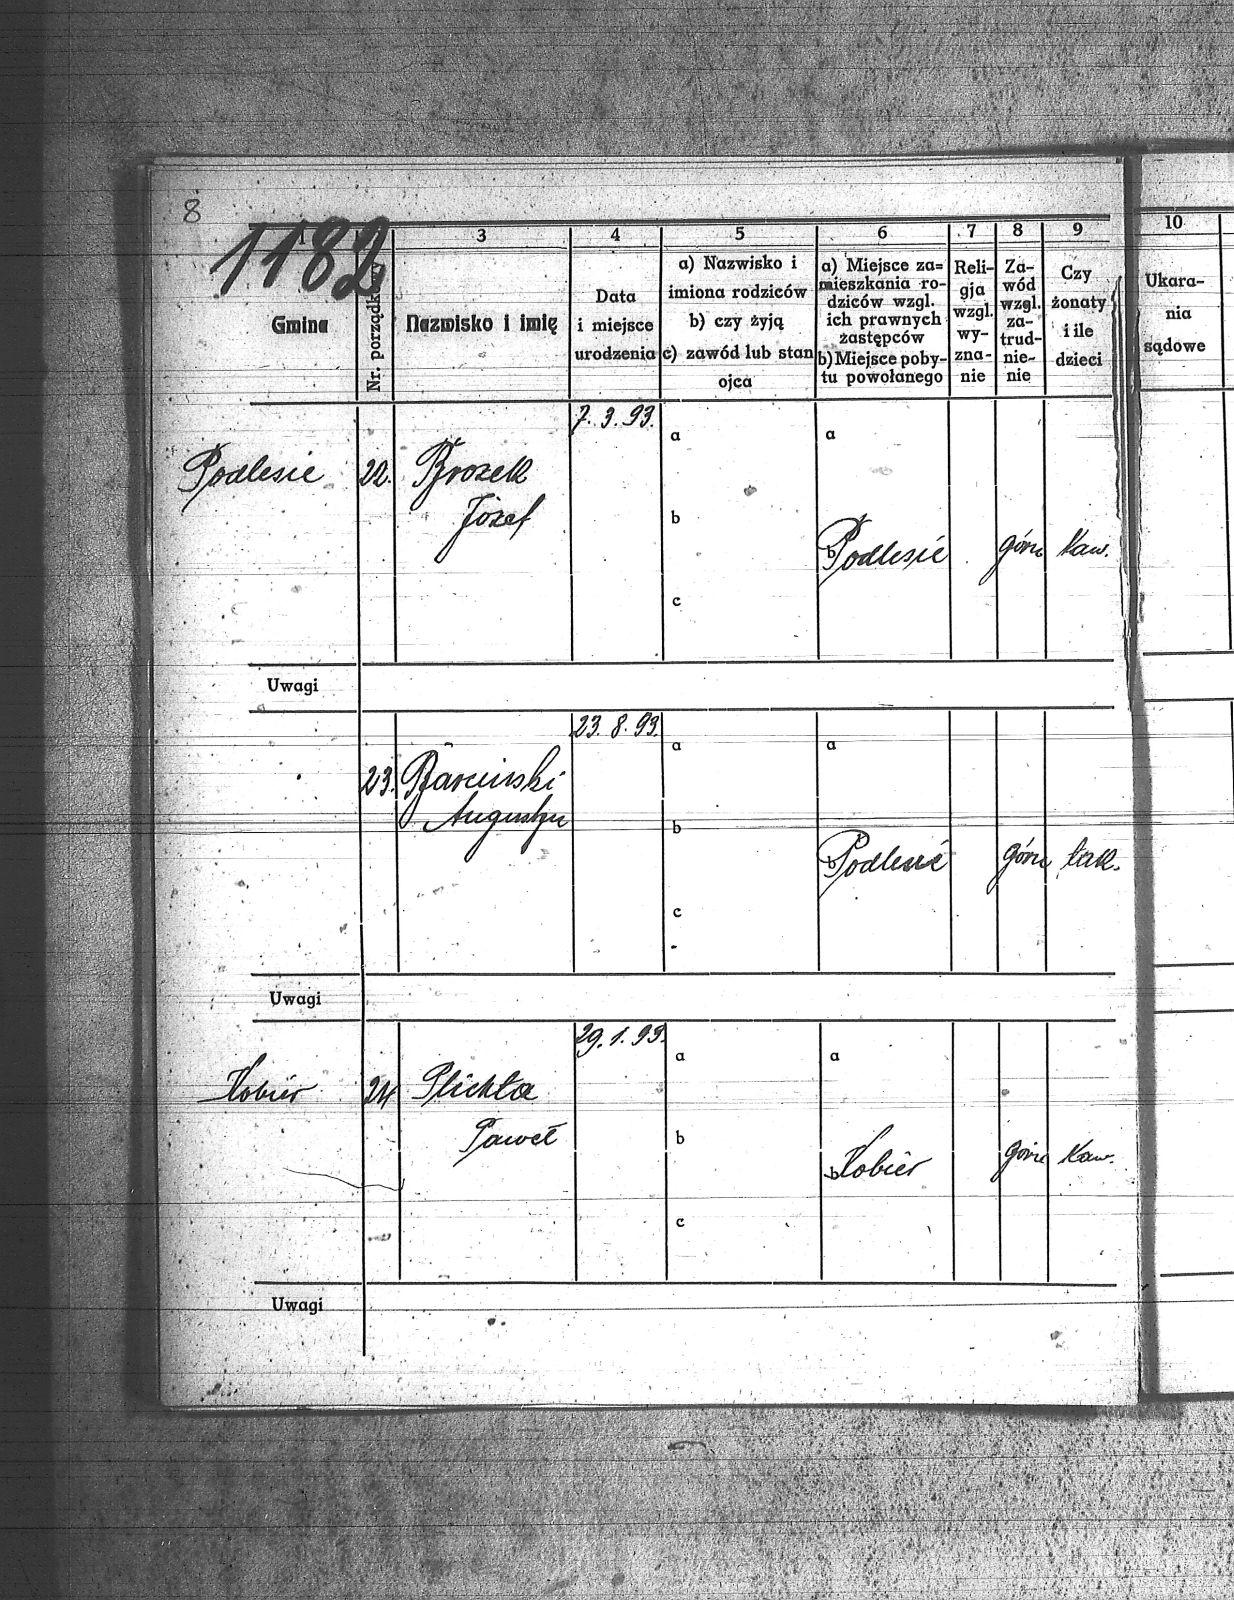 8
1182
1 3 4 5 6 7 8 9 10
Gmina
Nr. porządk.
Nazwisko i imię
Data
i miejsce
urodzenia
a) Nazwisko i
imiona rodziców
b) czy żyją
c) zawód lub stan
ojca
a) Miejsce za=
mieszkania ro-
dziców wzgl.
ich prawnych
zastępców
b) Miejsce poby-
tu powołanego
Reli-
gja
wzgl.
wy-
zna-
nie
Za-
wód
wzgl.
za-
trud-
nie-
nie
Czy
żonaty
i ile
dzieci
Ukara-
nia
sądowe
7. 3. 93.
a a
Podlesie 22. Brozek
Józef
b
b Podlesie górn kaw.
c
Uwagi
23. 8. 93.
a a
23.
Augustyn
b
b Podlesie górn żak.
c
Uwagi
29. 1. 93.
a a
Kobiór 24 Plichta
Paweł
b
b Kobiór górn kaw.
c
Uwagi